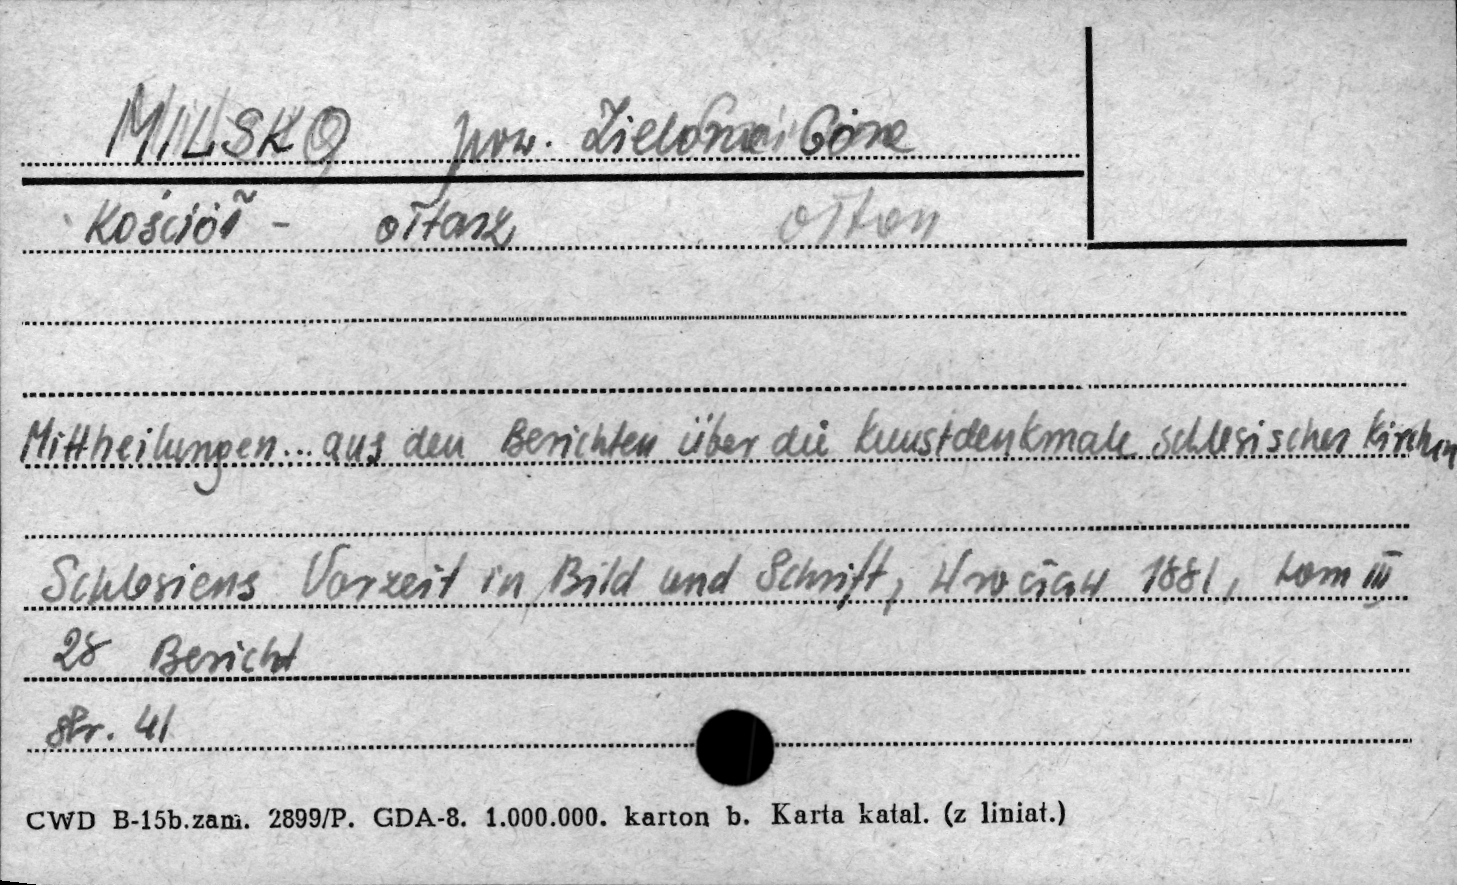 MILSKO pow. Zielona Góra
Kościół - ołtarz
Mittheilungen... aus den Berichten über die Kunstdenkmale schlesischer Kirchen
Schlesiens Vorzeit in Bild und Schrift, Wrocław 1881, tom III
28 Bericht
str. 41
CWD B-15b.zam. 2899/P. GDA-8. 1.000.000. karton b. Karta katal. (z liniat.)